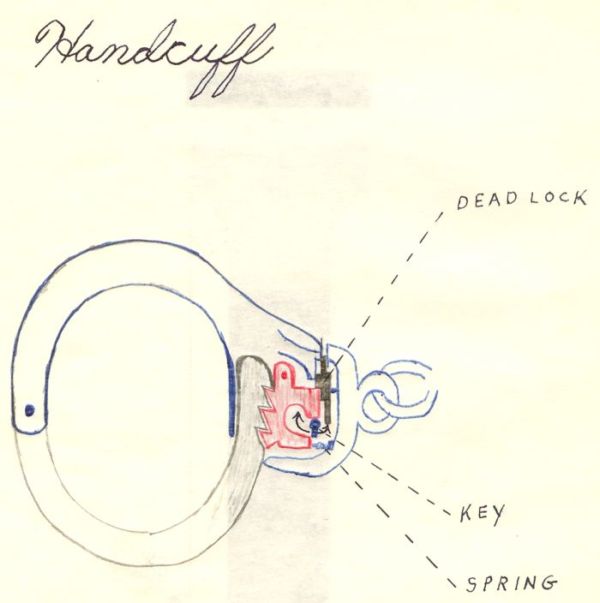 Handcuff
DEAD LOCK
KEY
SPRING